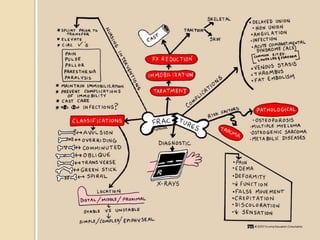 SKELETAL
TRACTION
SKIN
CAST
FX REDUCTION
IMMOBILIZATION
TREATMENT
NURSING INTERVENTIONS
• SPLINT PRIOR TO
TRANSFER
• ELEVATE
PAIN
PULSE
PALLOR
PARESTHESIA
PARALYSIS
• MAINTAIN IMMOBILIZATION
• PREVENT COMPLICATIONS
OF IMMOBILITY
• CAST CARE
INFECTIONS?
COMPLICATIONS
• DELAYED UNION
• NON UNION
• ANGULATION
• INFECTION
• ACUTE COMPARTMENTAL
SYNDROME (ACS)
• VENOUS STASIS
• THROMBUS
• FAT EMBOLISM
RISK FACTORS
PATHOLOGICAL
• OSTEOPOROSIS
• MULTIPLE MYELOMA
• OSTEOGENIC SARCOMA
• METABOLIC DISEASES
TRAUMA
FRACTURES
CLASSIFICATIONS
AVULSION
OVERRIDING
COMMINUTED
OBLIQUE
TRANSVERSE
GREEN STICK
SPIRAL
LOCATION
DISTAL/MIDDLE/PROXIMAL
STABLE VS UNSTABLE
SIMPLE/COMPLEX/EPIPHYSEAL
DIAGNOSTIC
R
X-RAYS
• PAIN
• EDEMA
• DEFORMITY
• ↓ FUNCTION
• FALSE MOVEMENT
• CREPITATION
• DISCOLORATION
• ↓ SENSATION
Nursing Education Consultants